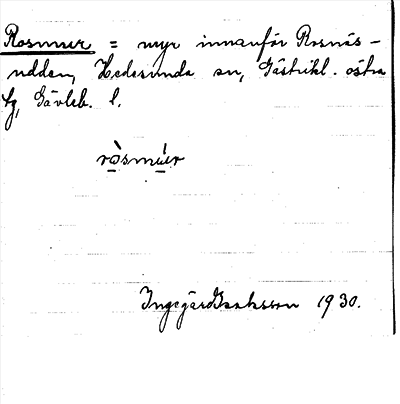 Rosmur = myr innanför Rosnäs-
udden, Hedesunda sn, Gästrikl. östra
tg, Gävleb. l.
ròsmúer
Ingegärd Isaksson 1930.